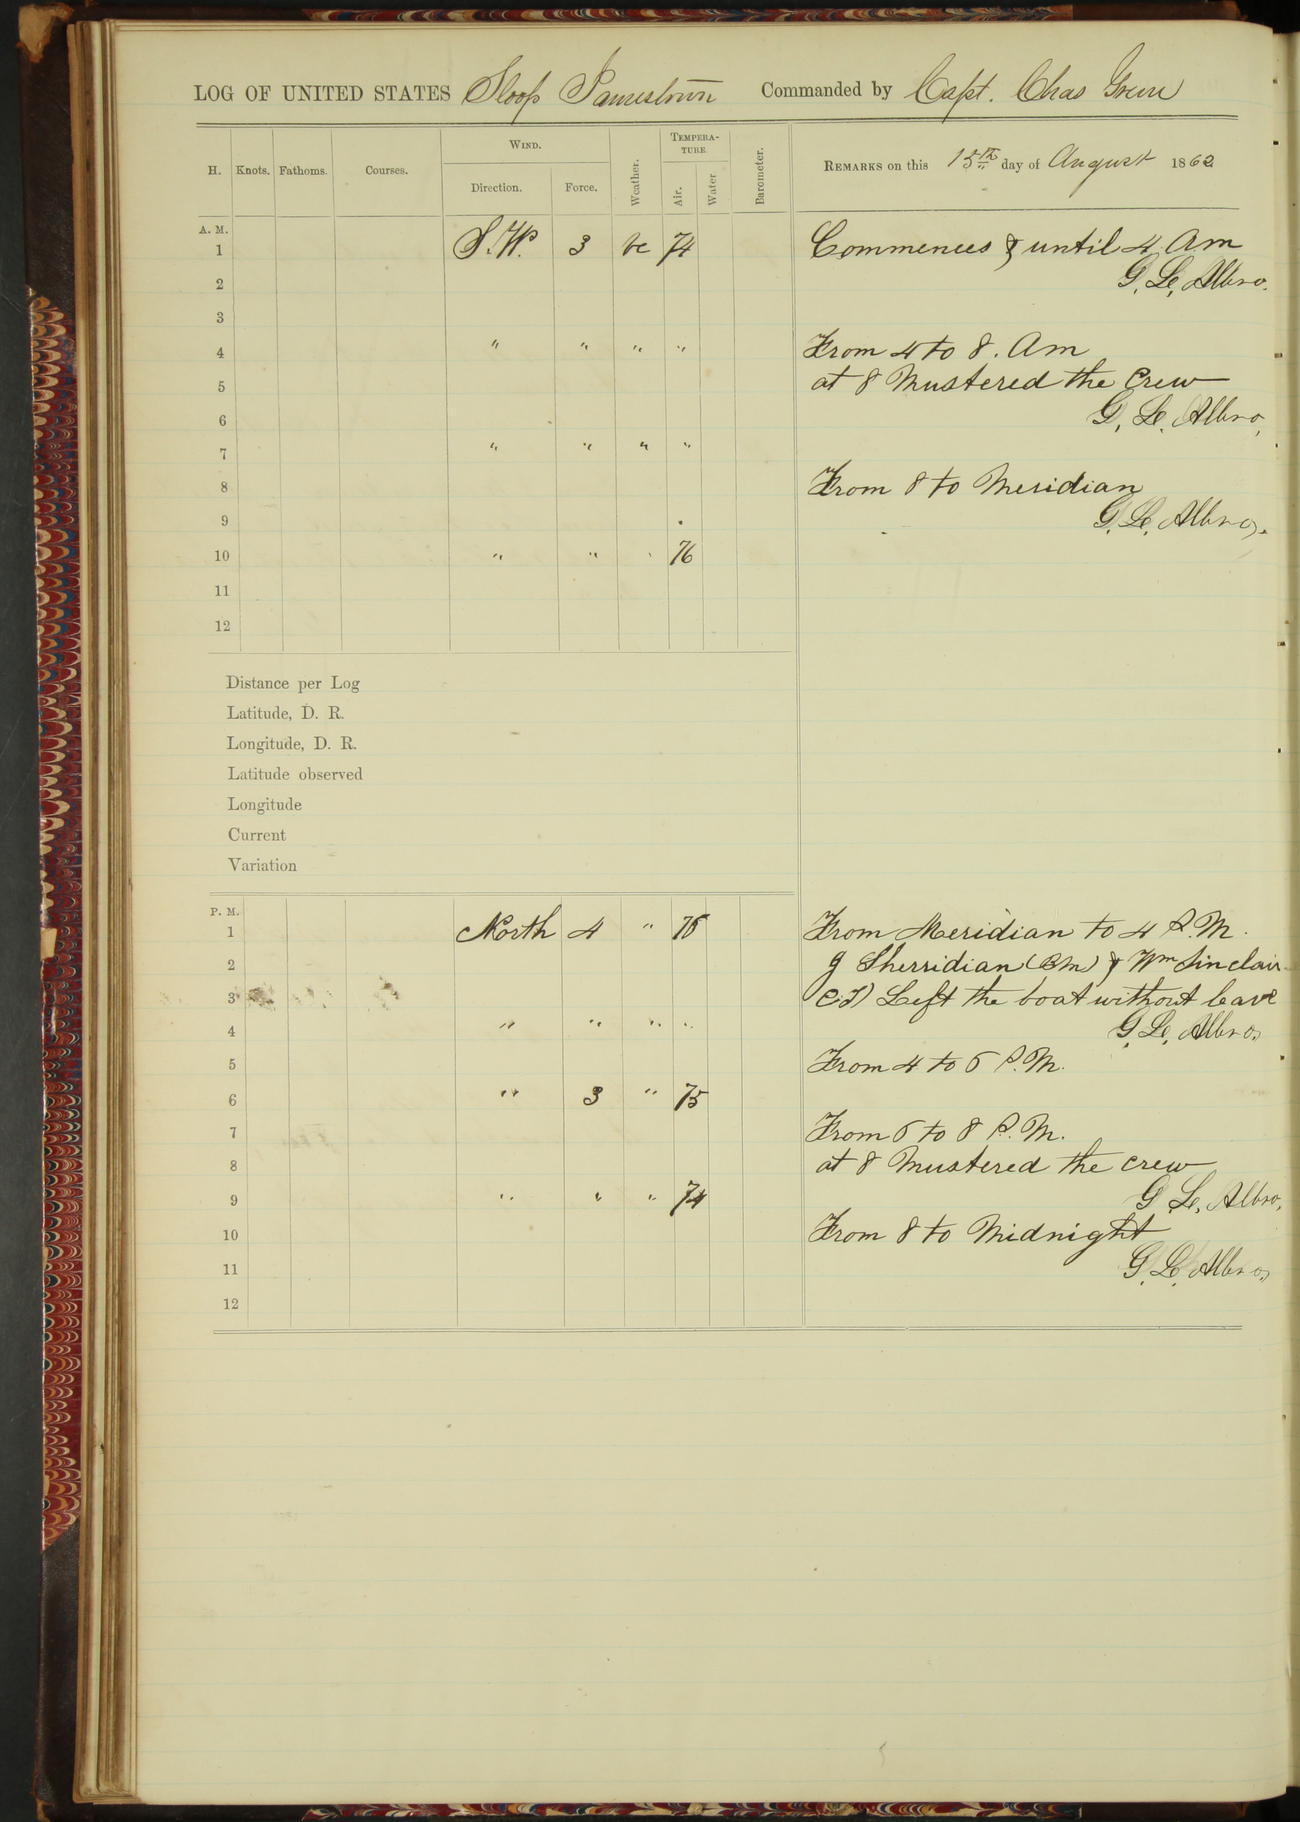 LOG OF UNITED STATES Sloop Jamestown Commanded by Capt. Chas Green
H. Knots. Fathoms. Courses. WIND. Direction. Force. Weather. TEMPERA-TURE. Air. Water Barometer. REMARKS on this 15th day of August 1862
A. M.
1 S.W. 3 bc 74 Commences & until 4 Am
2 G. Le. Albro.
3
4 " " " " From 4 to 8. Am
5 at 8 Mustered the Crew
6 G. Le. Albro,
7 " " " "
8 From 8 to Meridian
9 G. Le. Albro.
10 " " " 76
11
12
Distance per Log
Latitude, D. R.
Longitude, D. R.
Latitude observed
Longitude
Current
Variation
P. M.
1 North 4 " 76 From Meridian to 4 P.M.
2 J Sherridian (BM) & Wm Sinclair
3 Left the boat without leave
4 " " " " G. Le. Albro.
5 From 4 to 6 P.M.
6 " 3 " 75
7 From 6 to 8 P.M.
8 at 8 Mustered the crew
9 " " " 74 G Le. Albro.
10 From 8 to Midnight
11 G. Le. Albro.
12